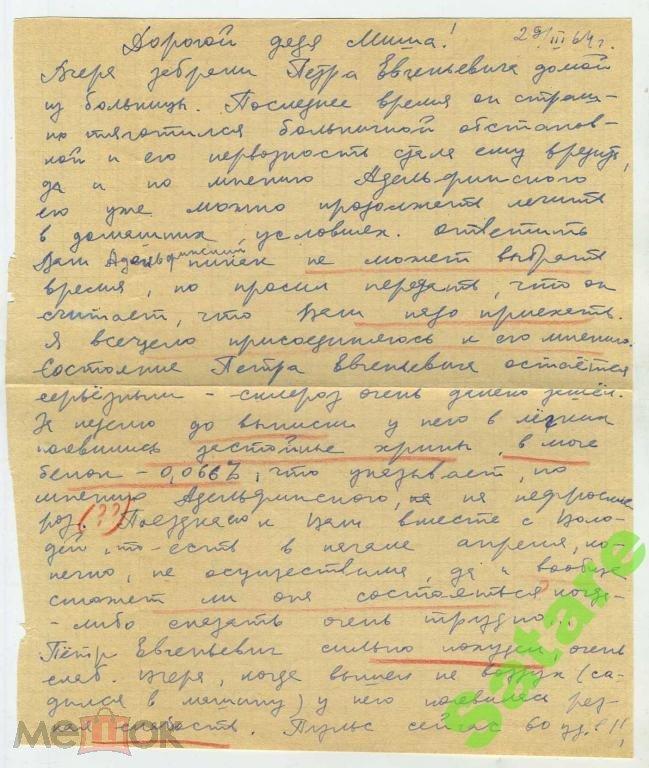 Дорогой дядя Миша! 29/III 64 г.
Вчера забрали Петра Евгеньевича домой
из больницы. Последнее время он страш-
но тяготился больничной обстанов-
кой и его нервозность стала ему вредить,
да и по мнению Адельфинского
его уже можно продолжать лечить
в домашних условиях. Ответить
Вам Адельфинский никак не может выбрать
время, но просил передать, что он
считает, что Вам надо приехать.
Я всецело присоединяюсь к его мнению.
Состояние Петра Евгеньевича остаётся
серьёзным - склероз очень далеко зашёл.
За неделю до выписки у него в лёгких
появились застойные хрипы, в моче
белок - 0,066%, что указывает, по
мнению Адельфинского, на нефроскле
роз. (??) Поездка к Вам вместе с Воло-
дей, то-есть в начале апреля, ко-
нечно, не осуществима, да и вообще
сможет ли она состояться когда-
-либо сказать очень трудно...
Пётр Евгеньевич сильно похудел, очень
слаб. Вчера, когда вышел на воздух (са-
дился в машину) у него появилась рез-
кая слабость. Пульс сейчас 60 уд.!!
Satare
мешок